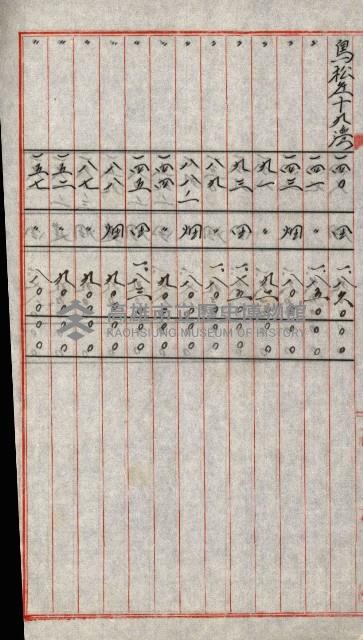 鳥松庄十九灣 一四〇 田 一、八六〇〇〇
〃 一四一 〃 一、五〇〇〇
〃 一四三 畑 八〇〇〇
〃 九一 〃 九二〇〇
〃 九三 田 一、八五〇〇
〃 八九 〃 一、八〇〇〇
〃 八八ノ一 畑 八〇〇〇
〃 一四四 〃 九〇〇〇
〃 一四五 田 一、二〇〇〇
〃 八八 畑 九〇〇〇
〃 八七 〃 九〇〇〇
〃 一五二 〃 九〇〇〇
〃 一五七 〃 八〇〇〇
高雄市立歷史博物館
KAOHSIUNG MUSEUM OF HISTORY